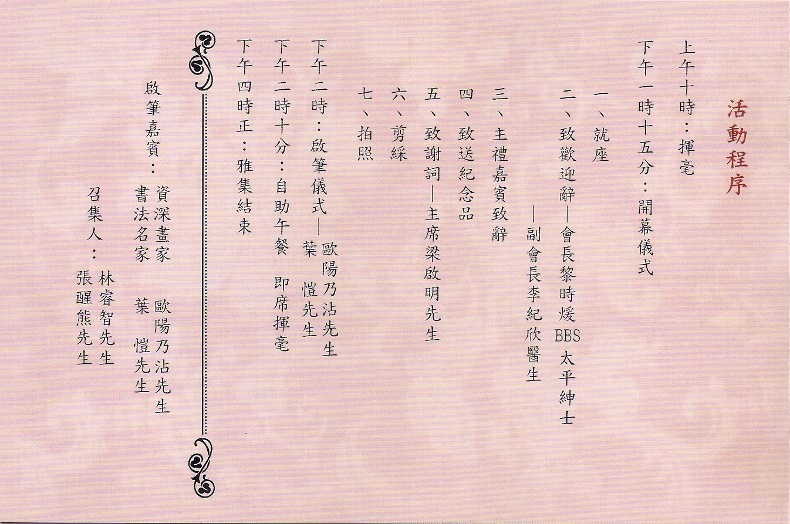 活動程序
上午十時：揮毫
下午一時十五分：開幕儀式
一、就座
二、致歡迎辭—會長黎時煖BBS太平紳士
—副會長李紀欣醫生
三、主禮嘉賓致辭
四、致送紀念品
五、致謝詞—主席梁啟明先生
六、剪綵
七、拍照
下午二時：啟筆儀式—歐陽乃沾先生
葉　愷先生
下午二時十分：自助午餐　即席揮毫
下午四時正：雅集結束
啟筆嘉賓：資深畫家　歐陽乃沾先生
書法名家　葉　愷先生
召集人：林睿智先生
張醒熊先生